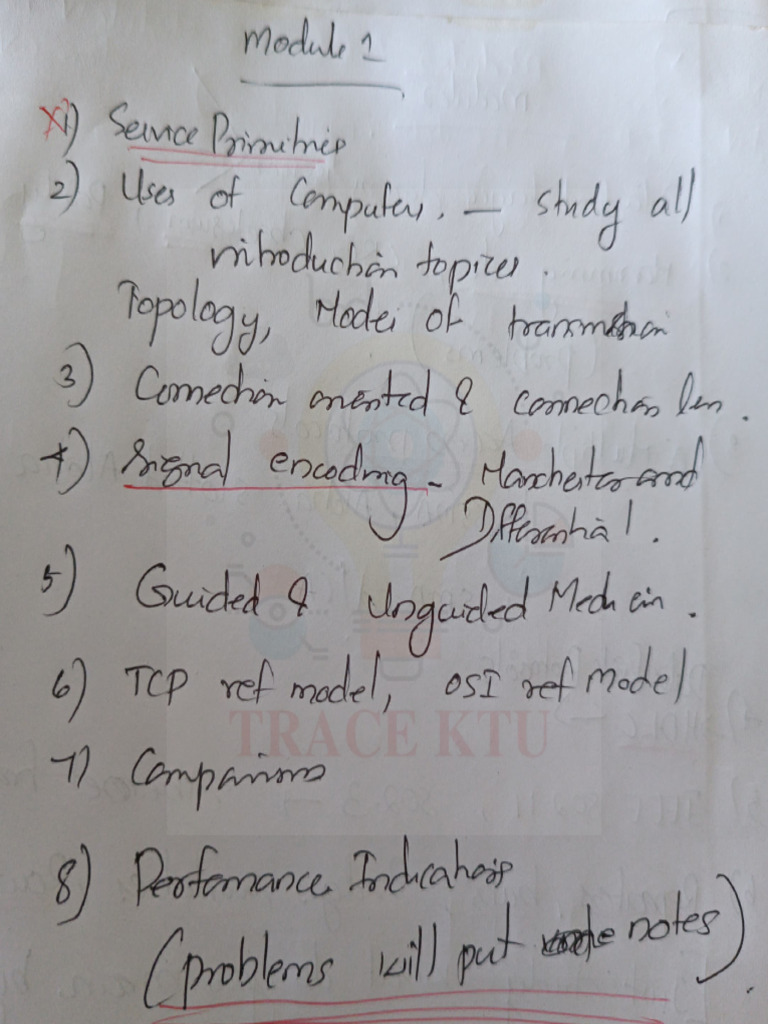 Module 1
1) Service Primitives
2) Uses of Computers. — Study all
introduction topics.
Topology, Modes of transmission
3) Connection oriented & connection less.
4) Signal encoding - Manchester and
Differential.
5) Guided & Unguided Medium.
6) TCP ref model, OSI ref Model
TRACE KTU
7) Comparisons
8) Performance Indicators
(problems will put notes).